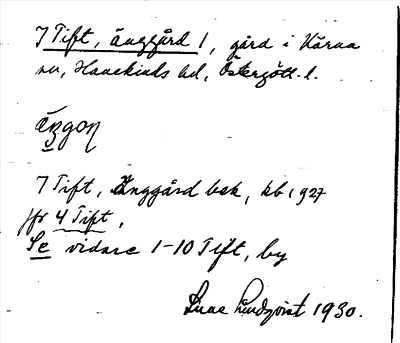 7 Tift, änggård 1, gård i Kärna
sn, Hanekinds hd, Östergötl. l.
äŋgoɳ
7 Tift, Änggård bek, kb 1927
jfr 4 Tift,
Se vidare 1-10 Tift, by
Lindqvist 1930.